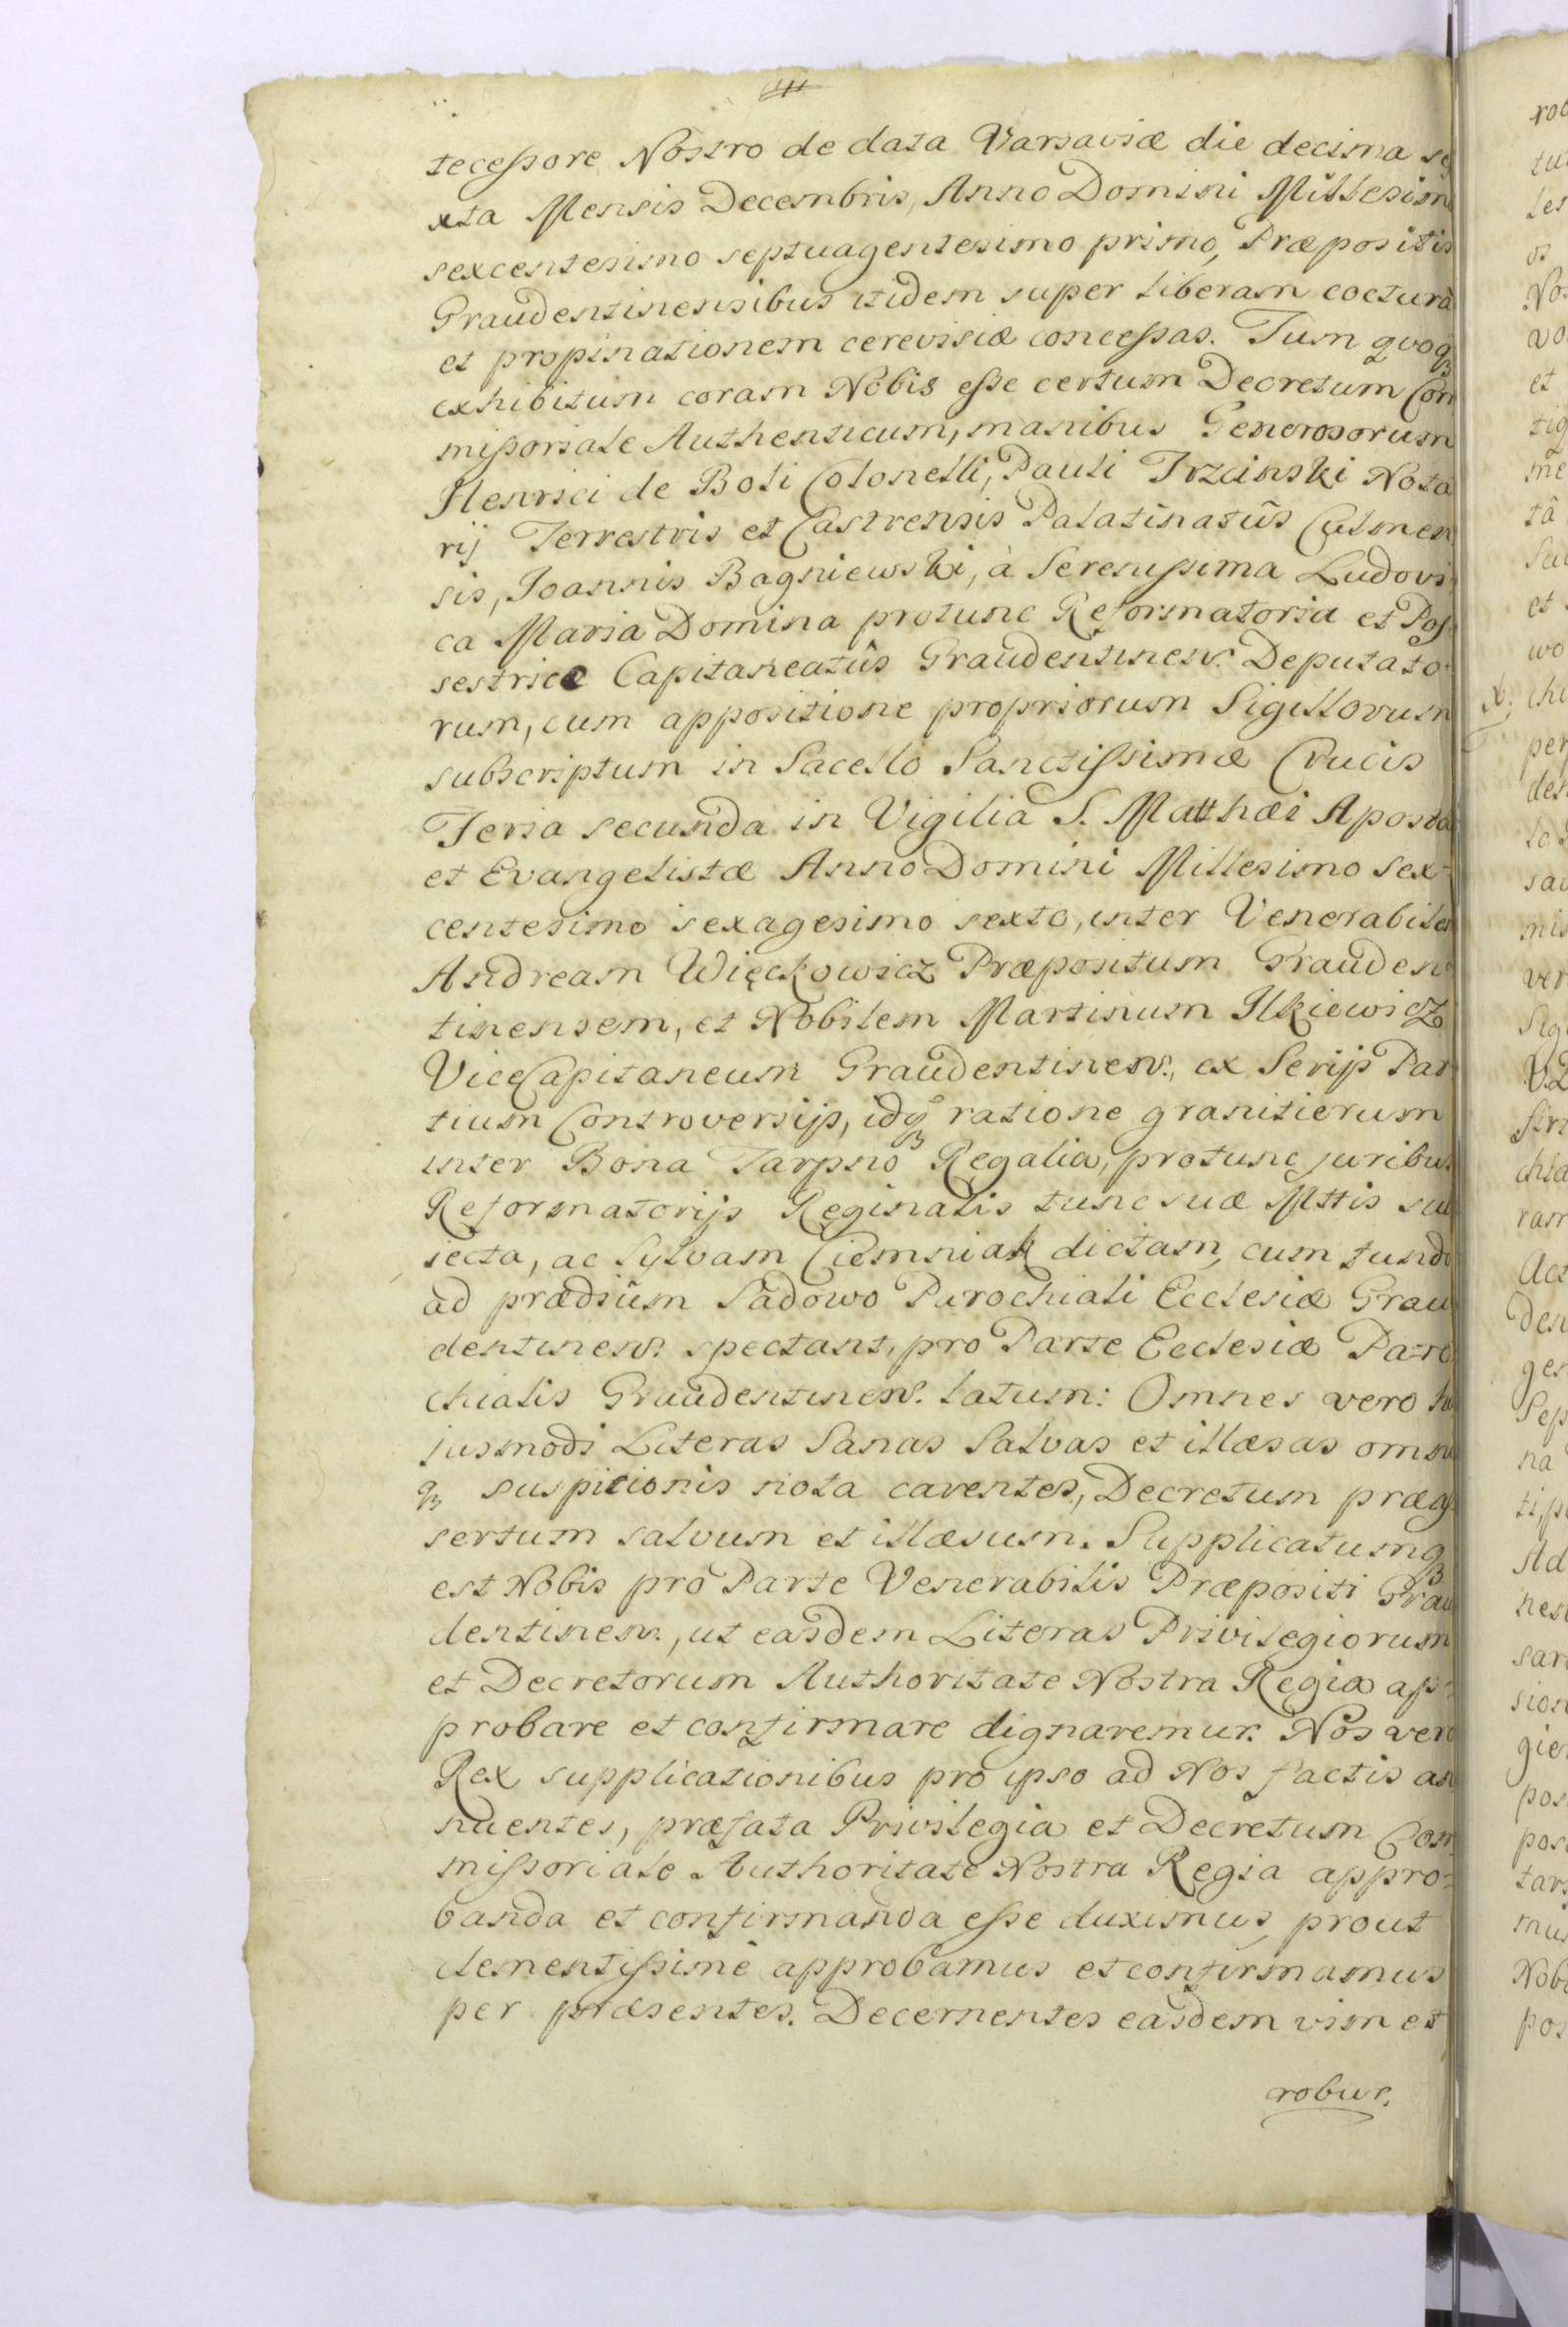 tecessore Nostro de data Varsaviæ die decima se
xta Mensis Decembris, Anno Domini Millesim
sexcentesimo septuagentesimo primo, Præpositis
Graudentinensibus itidem super liberam cocturã
et propinationem cerevisiæ concessas. Tum quoq
exhibitum coram Nobis esse certum Decretum Com
missoriale Authenticum, manibus Generosorum
Henrici de Boli Colonelli, Pauli Trzcinski Nota
rij Terrestris et Castrensis Palatinatûs Culmen
sis, Joannis Bagniewski, à Serenissima Ludovi
ca Maria Domina protunc Reformatoria et Pos
sestrice Capitaneatûs Graudentinens. Deputato
rum, cum appositione propriorum Sigillorum
subscriptum in Sacello Sanctissimæ Crucis
Feria secunda in Vigilia S. Matthæi Aposto
et Evangelistæ Anno Domini Millesimo Sex-
centesimo sexagesimo sexto, inter Venerabilem
Andream Więckowicz Præpositum Grauden
tinensem, et Nobilem Martinum Ilkiewicz
ViceCapitaneum Graudentinens., ex Serijs Par
tium Controversijs, idq ratione granitierum
inter Bona Tarpno Regalia, protunc juribus
Reformatorijs Reginalis tunc suæ Mttis su
iecta, ac Sylvam Ciemniak dictam, cum fundo
ad prædium Sadowo Parochiali Ecclesiæ Grau
dentinens. spectant, pro Parte Ecclesiæ Paro
chialis Graudentinens. latum: Omnes vero hu
jusmodi Literas Sanas Salvas et illæsas omni
q suspicionis nota carentes, Decretum præ
sertum salvum et illæsum. Supplicatumq
est Nobis pro Parte Venerabilis Præpositi Grau
dentinens., ut easdem Literas Privilegiorum
et Decretorum Authoritate Nostra Regia ap=
probare et confirmare dignaremur. Nos vero
Rex supplicationibus pro ipso ad Nos factis an
nuentes, præfata Privilegia et Decretum Com
missoriale Authoritate Nostra Regia appro=
banda et confirmanda esse duximus, prout
clementissimè approbamus et confirmamus
per præsentes. Decernentes easdem vim et
robur.